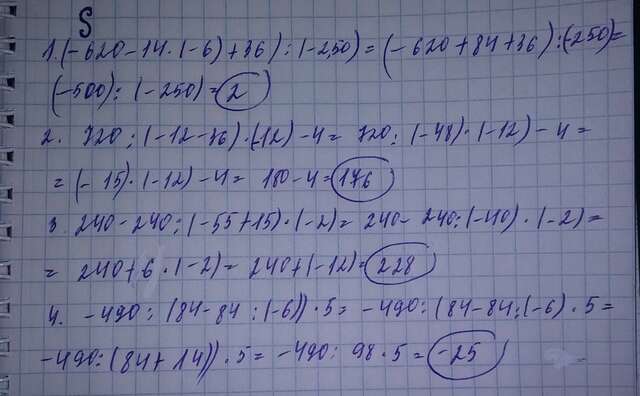 S
1. (-620-14·(-6)+36):(-250)=(-620+84+36):(-250)=
(-500):(-250)=2
2. 720:(-12-36)·(-12)-4=720:(-48)·(-12)-4=
=(-15)·(-12)-4=180-4=176
3. 240-240:(-55+15)·(-2)=240-240:(-40)·(-2)=
=240+6·(-2)=240+(-12)=228
4. -490:(84-84:(-6))·5=-490:(84-84:(-6)·5=
-490:(84+14))·5=-490:98·5=-25